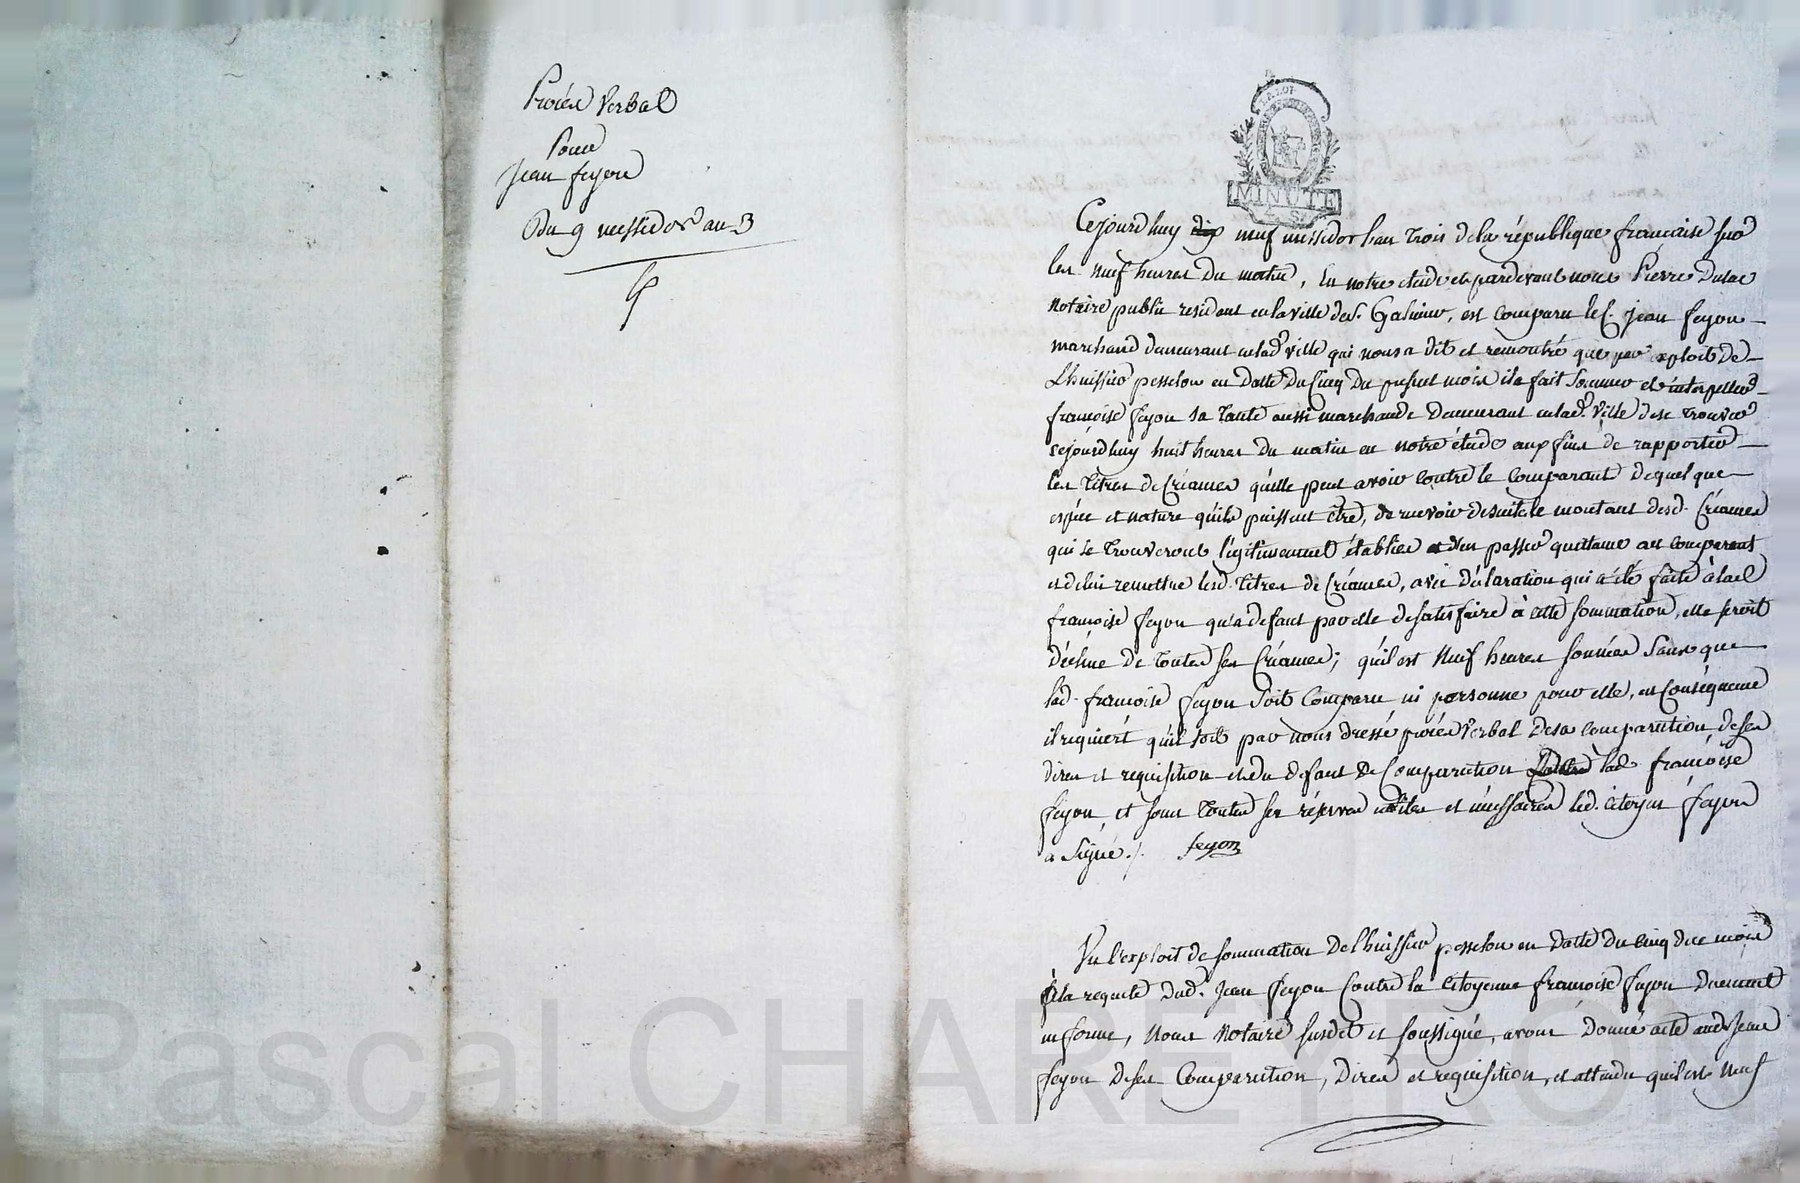 Procès Verbal
Pour
Jean feyon
Du 9 messidor an 3
LA LOI
MINUTE
4 S.
Cejourdhuy neuf messidor lan Trois dela république francaise sur
les neuf heures du matin, En notre etude et pardevant nous Pierre Dulac
Notaire public residant en la ville de St. Galmier, est comparu le C. jean feyon
marchand demeurant en lad. ville qui nous a dit et remontré que par exploit de
Lhuissier pesselon en datte du Cinq du présent mois il a fait Sommer et interpeller
francoise feyon sa Tante aussi marchande demeurant en lad. Ville de se trouver
cejourdhuy huit heures du matin en notre étude aux fins de rapporter
les Titres de Créances qu'elle peut avoir contre le comparant de quel que
espèce et nature qu'ils puissent être, de recevoir de suite le montant desd. Créances
qui se Trouveront légitimement établies et d'en passer quittance au comparant
et de lui remettre lesd. Titres de Créances, avec déclaration qui a été faite à lad.
francoise feyon qu'a defaut par elle de satisfaire à cette sommation, elle seroit
déchue de toutes ses Créances; qu'il est Neuf heures sonnées Sans que
lad. francoise feyon Soit Comparu ni personne pour elle, en Conséquence
il requiert qu'il soit par nous dressé procès Verbal de sa comparution de ses
dires et requisition et du defaut de Comparution lad. francoise
feyon, et sous Toutes ses réserves utiles et nécessaires led. citoyen feyon
a Signé./. feyon
Vu l'exploit de sommation de l'huissier pesselon en datte du cinq de ce mois
à la requete dud. Jean feyon Contre la citoyenne francoise feyon Duement
en forme, Nous Notaire susdit et soussigné, avons donné acte aud. Jean
feyon de ses Comparution, Dires et requisition, et attendu qu'il est Neuf
Pascal CHAREYRON